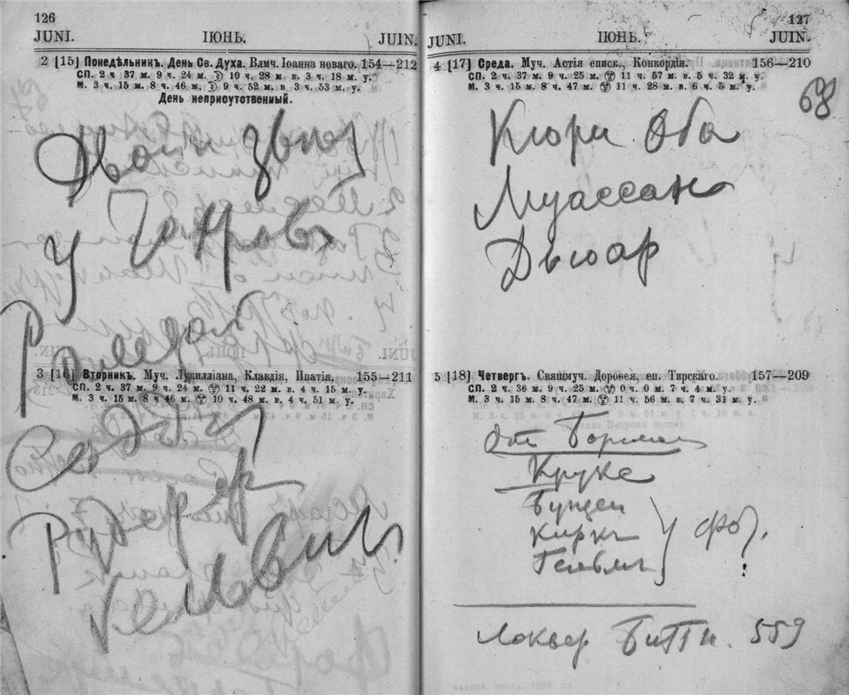 126
JUNI. ІЮНЬ. JUIN.
2 [15] Понедѣльникъ. День Св. Духа. Влмч. Іоанна новаго. 154—212
СП. 2 ч 37 м. 9 ч. 24 м. 10 ч. 28 м в. 3 ч. 18 м. у.
М. 3 ч. 15 м. 8 ч 46 м. 9 ч. 52 м. в 3 ч. 53 м. у.
День неприсутственный.
у
Рамзай
3 [16] Вторникъ. Муч. Лукилліана, Клавдія, Ипатія. 155—211
СП. 2 ч. 37 м. 9 ч. 24 м. 11 ч. 22 м. в. 4 ч. 15 м. у.
М. 3 ч. 15 м. 8 ч 46 м. 10 ч. 48 м. в. 4 ч. 51 м. у.
Содди
Рудерф
Кельвин
127
JUNI. ІЮНЬ. JUIN.
4 [17] Среда. Муч. Астія еписк., Конкордія. 156—210
СП. 2 ч. 37 м. 9 ч. 25 м. 11 ч. 57 м. в. 5 ч. 32 м. у.
М. 3 ч. 15 м. 8 ч. 47 м. 11 ч. 28 м. в. 6 ч. 5 м. у.
68
Кюри Оба
Муассан
Дьюар
5 [18] Четвергъ. Священмуч. Дорофея, еп. Тирскаго. 157—209
СП. 2 ч. 36 м. 9 ч. 25 м. 0 ч. 0 м. 7 ч. 4 м. у.
М. 3 ч. 15 м. 8 ч. 47 м. 11 ч. 56 м. в. 7 ч. 31 м. у.
от
Крукс
Бунзен
Кирх
Гельмг
фо?
Локьер Битти. 559